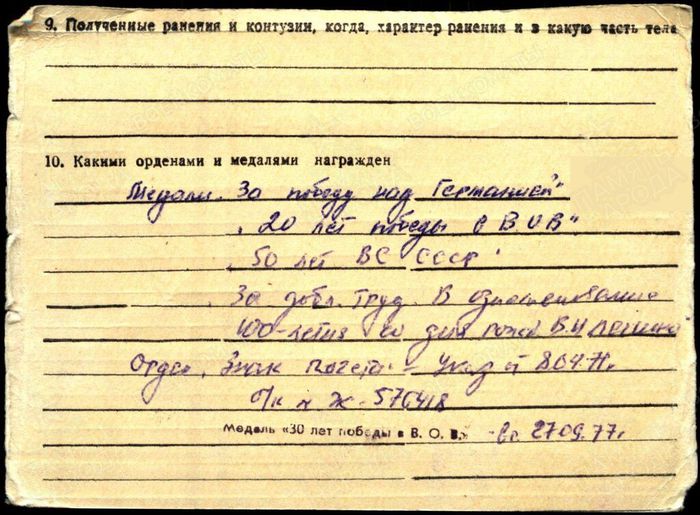 9. Полученные ранения и контузии, когда, характер ранения и в какую часть тела
10. Какими орденами и медалями награжден
Медали „За победу над Германией"
„20 лет победы в ВОВ"
„50 лет ВС СССР"
За добл. труд. В ознаменование
100-летия со дня рожд В.И Ленина"
Орден „Знак Почета" - Указ от 8.04.71г
о/к № Ж-576418
Медаль «30 лет победы в В. О. В.» - 27.09.77г